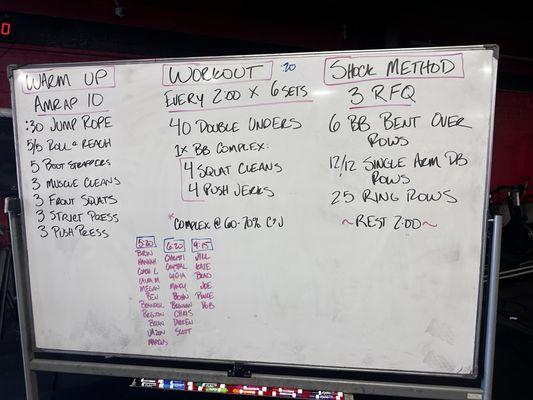 WARM UP
AMRAP 10
:30 JUMP ROPE
5/5 ROLL & REACH
5 BOOT STRAPPERS
3 MUSCLE CLEANS
3 FRONT SQUATS
3 STRICT PRESS
3 PUSH PRESS
WORKOUT :20
EVERY 2:00 X 6 SETS
40 DOUBLE UNDERS
1X BB COMPLEX:
4 SQUAT CLEANS
4 PUSH JERKS
*COMPLEX @ 60-70% C&J
SHOCK METHOD
3 RFQ
6 BB BENT OVER
ROWS
12/12 SINGLE ARM DB
ROWS
25 RING ROWS
~REST 2:00~
5:30
HANNAH
LAURA M
MEGAN
BEN
BRIAN
JASON
MARCUS
6:30
CHRISTI
CRYSTAL
LYDIA
MANDY
BRENNAN
CHRIS
DARREN
SCOTT
9:15
JILL
KATE
BRAD
JOE
ROB